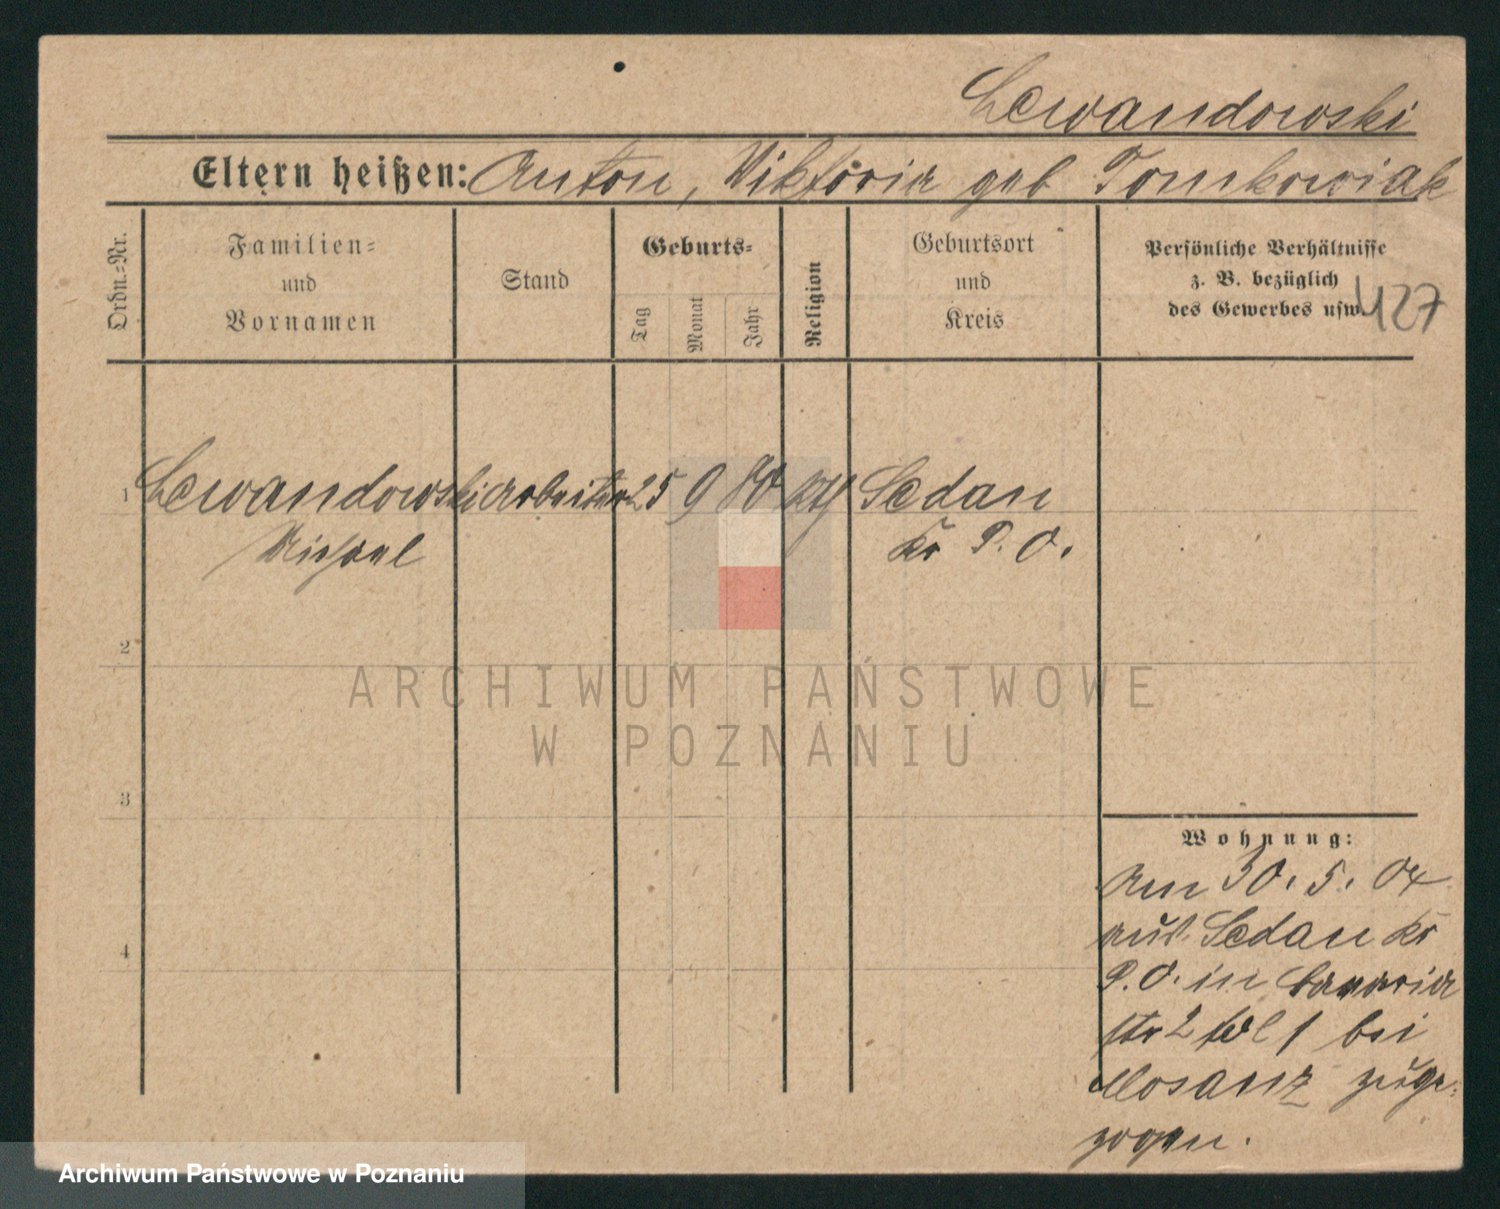 Lewandowski
Eltern heißen: Anton, Viktoria geb Tomkowiak
Ordn.=Nr.
Familien=
und
Vornamen
Stand
Geburts=
Tag
Monat
Jahr
Religion
Geburtsort
und
Kreis
Persönliche Verhältnisse
z. B. bezüglich
des Gewerbes usw.
427
1 Lewandowski Arbeiter 25 9 80 kth Sedan
Michael Kr P. O.
2
ARCHIWUM PAŃSTWOWE
W POZNANIU
3
Wohnung:
Am 30. 5. 04
aus Sedan Kr
4
P. O. in
str 2 1 bei
zuge=
zogen.
Archiwum Państwowe w Poznaniu